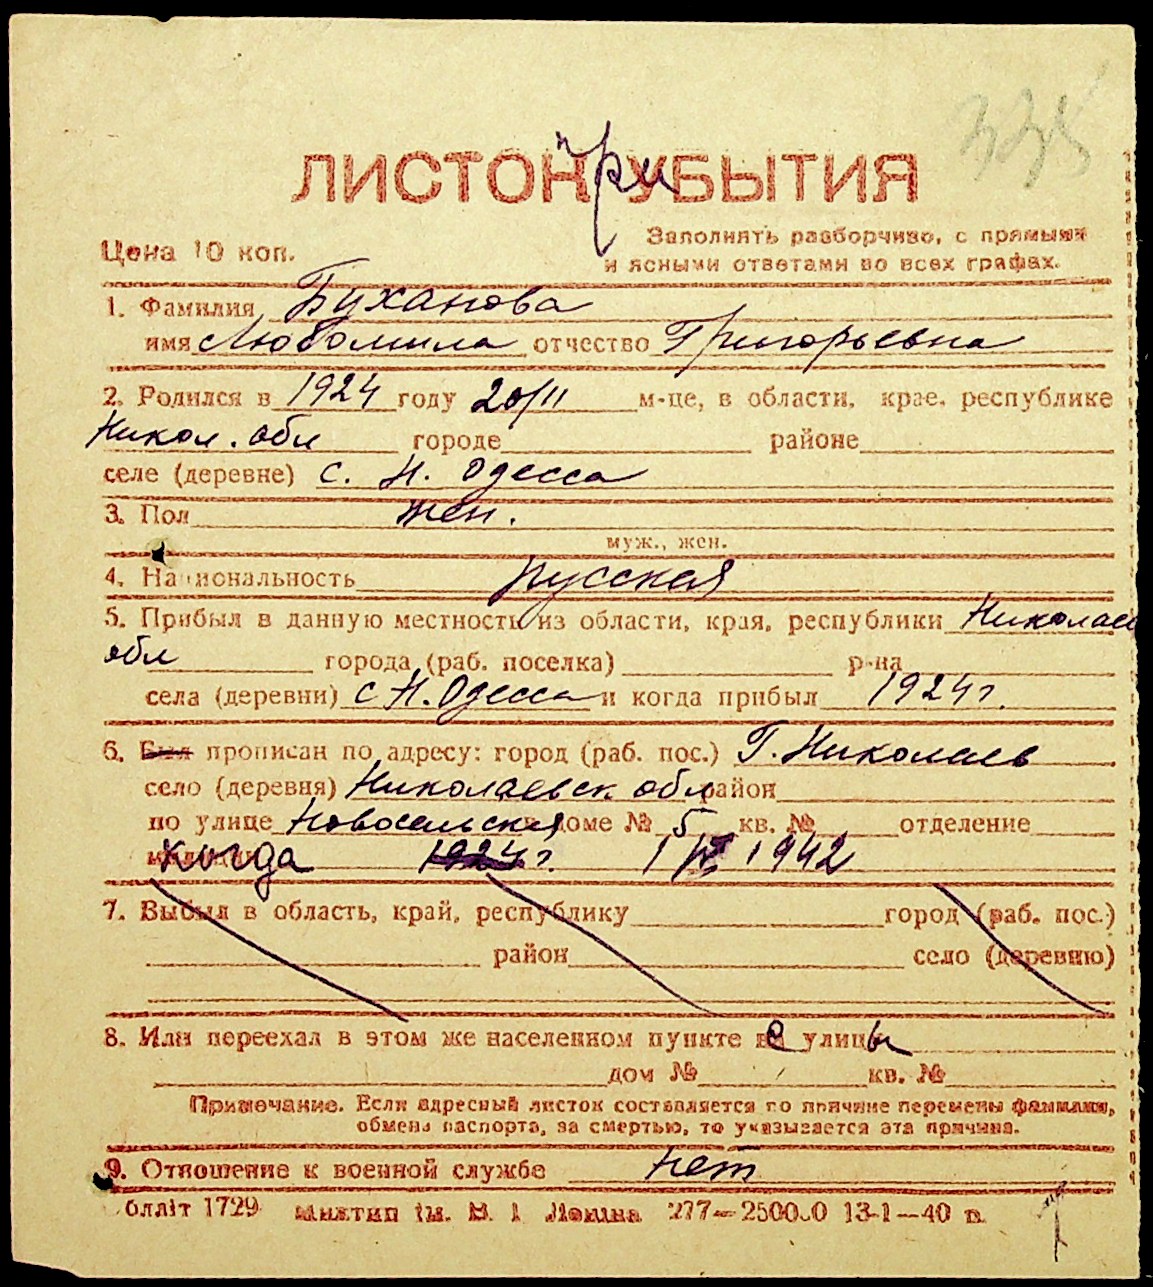 335
ЛИСТОК прибытия УБЫТИЯ
Цена 10 коп.
Заполнять разборчиво, с прямыми
и ясными ответами во всех графах.
1. Фамилия Буханова
имя Любомила отчество Григорьевна
2. Родился в 1924 году 20/II м-це, в области, крае, республике
Никол. обл городе районе
селе (деревне) с. Н. Одесса
3. Пол жен.
муж., жен.
4. Национальность русская
5. Прибыл в данную местность из области, края, республики Николаев
обл города (раб. поселка) р-на
села (деревни) с Н. Одесса и когда прибыл 1924 г.
6. Был прописан по адресу: город (раб. пос.) Г. Николаев
село (деревня) Николаевск обл район
по улице Новосельская в доме № 5 кв. № отделение
когда 1924 г. 1/IV 1942
7. Выбыл в область, край, республику город (раб. пос.)
район село (деревню)
8. Или переехал в этом же населенном пункте с улицы
дом № кв. №
Примечание. Если адресный листок составляется по причине перемены фамилии,
обмена паспорта, за смертью, то указывается эта причина.
9. Отношение к военной службе нет
блліт 1729 Миктип ім. В. І Леніна 277—25000 13-1—40 в.